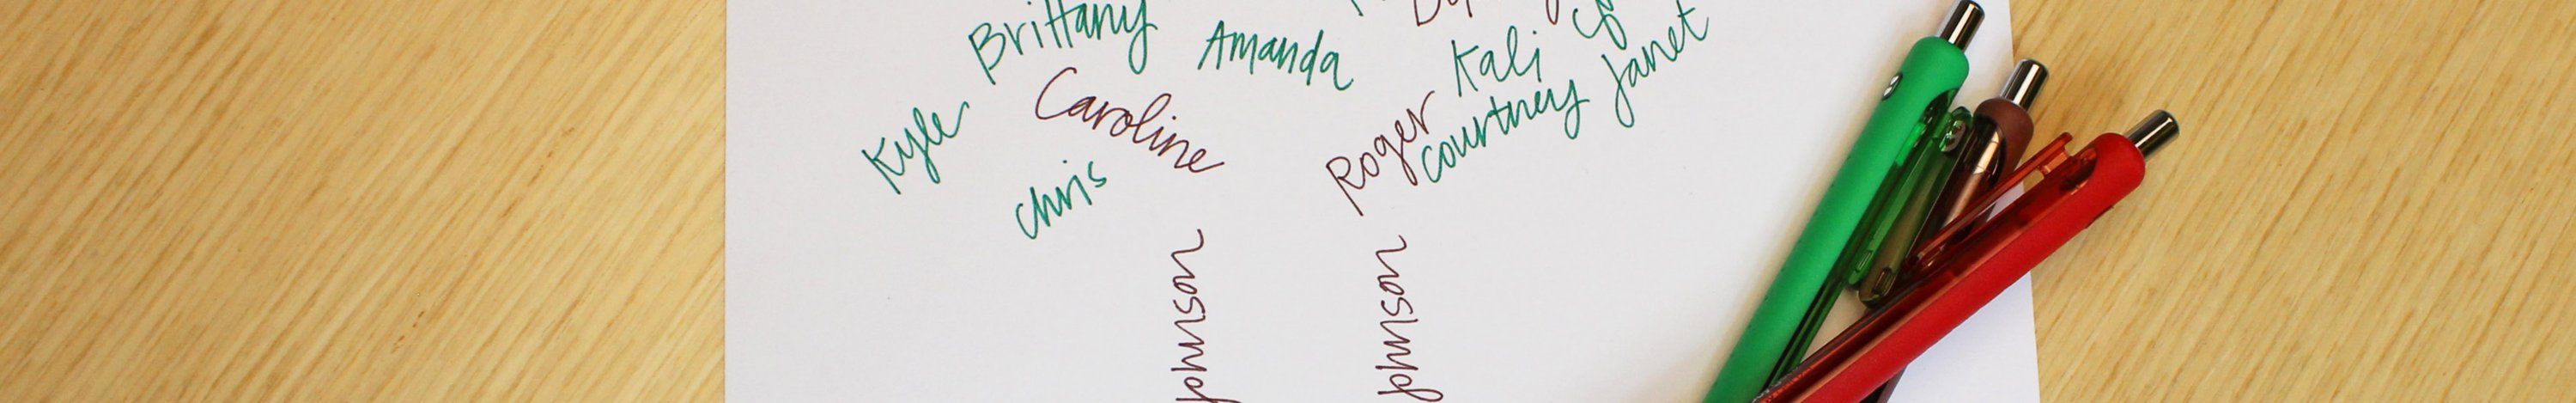 Brittany
Amanda
Kali
Janet
Kyle
Caroline
Roger
Courtney
Chris
Johnson
Johnson